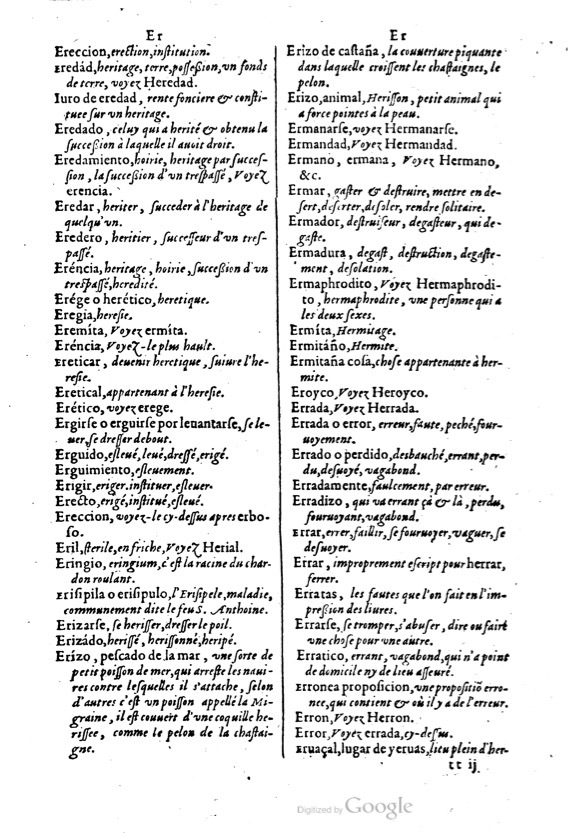 Er
Ereccion, erection, institution.
Eredád, heritage, terre, possession, vn fonds
de terre, voyez Heredad.
Iuro de eredad, rente fonciere & consti-
tuee sur vn heritage.
Eredado, celuy qui a herité & obtenu la
succession à laquelle il auoit droit.
Eredamiento, hoirie, heritage par succes-
sion, la succession d'vn trespassé, Voyez
erencia.
Eredar, heriter, succeder à l'heritage de
quelqu'vn.
Eredero, heritier, successeur d'vn tres-
passé.
Eréncia, heritage, hoirie, succession d'vn
trespassé, heredité.
Erége o herético, heretique.
Eregia, heresie.
Eremíta, Voyez ermíta.
Eréncia, Voyez-le plus hault.
Ereticar, deuenir heretique, suiure l'he-
resie.
Eretical, appartenant à l'heresie.
Erético, voyez erege.
Ergirse o erguirse por leuantarse, se le-
uer, se dresser debout.
Erguido, esleué, leué, dressé, erigé.
Erguimiento, esleuement.
Erigir, eriger, instituer, esleuer.
Erecto, erigé, institué, esleué.
Ereccion, voyez-le cy-dessus apres erbo-
so.
Eril, sterile, en friche, Voyez Herial.
Eringio, eringium, c'est la racine du char-
don roulant.
Erisipila o erisipulo, l'Erisipele, maladie,
communement dite le feu S. Anthoine.
Erizarse, se herisser, dresser le poil.
Erizádo, herissé, herissonné, heripé.
Erízo, pescado de la mar, vne sorte de
petit poisson de mer, qui arreste les naui-
res contre lesquelles il s'attache, selon
d'autres c'est vn poisson appellé la Mi-
graine, il est couuert d'vne coquille he-
rissee, comme le pelon de la chastai-
gne.
Er
Erizo de castaña, la couuerture piquante
dans laquelle croissent les chastaignes, le
pelon.
Erizo, animal, Herisson, petit animal qui
a force pointes à la peau.
Ermanarse, voyez Hermanarse.
Ermandad, Voyez Hermandad.
Ermano, ermana, Voyez Hermano,
&c.
Ermar, gaster & destruire, mettre en de-
sert, deserter, desoler, rendre solitaire.
Ermador, destruiseur, degasteur, qui de-
gaste.
Ermadura, degast, destruction, degaste-
ment, desolation.
Ermaphrodito, Voyez Hermaphrodi-
to, hermaphrodite, vne personne qui a
les deux sexes.
Ermíta, Hermitage.
Ermitáño, Hermite.
Ermitaña cosa, chose appartenante à her-
mite.
Eroyco, Voyez Heroyco.
Errada, Voyez Herrada.
Errada o error, erreur, faute, peché, four-
uoyement.
Errado o perdido, desbauché, errant, per-
du, desuoyé, vagabond.
Erradamente, faulcement, par erreur.
Erradizo, qui va errant çà & là, perdu,
fouruoyant, vagabond.
Errar, errer, faillir, se fouruoyer, vaguer, se
desuoyer.
Errar, improprement escript pour herrar,
ferrer.
Erratas, les fautes que l'on fait en l'im-
pression des liures.
Errarse, se tromper, s'abuser, dire ou faire
vne chose pour vne autre.
Erratico, errant, vagabond, qui n'a point
de domicile ny de lieu asseuré.
Erronea proposicion, vne propositiõ erro-
nee, qui contient & où il y a de l'erreur.
Erron, Voyez Herron.
Error, Voyez errada, cy-dessus.
Eruaçal, lugar de yeruas, lieu plein d'her-
tt ij
Digitized by Google